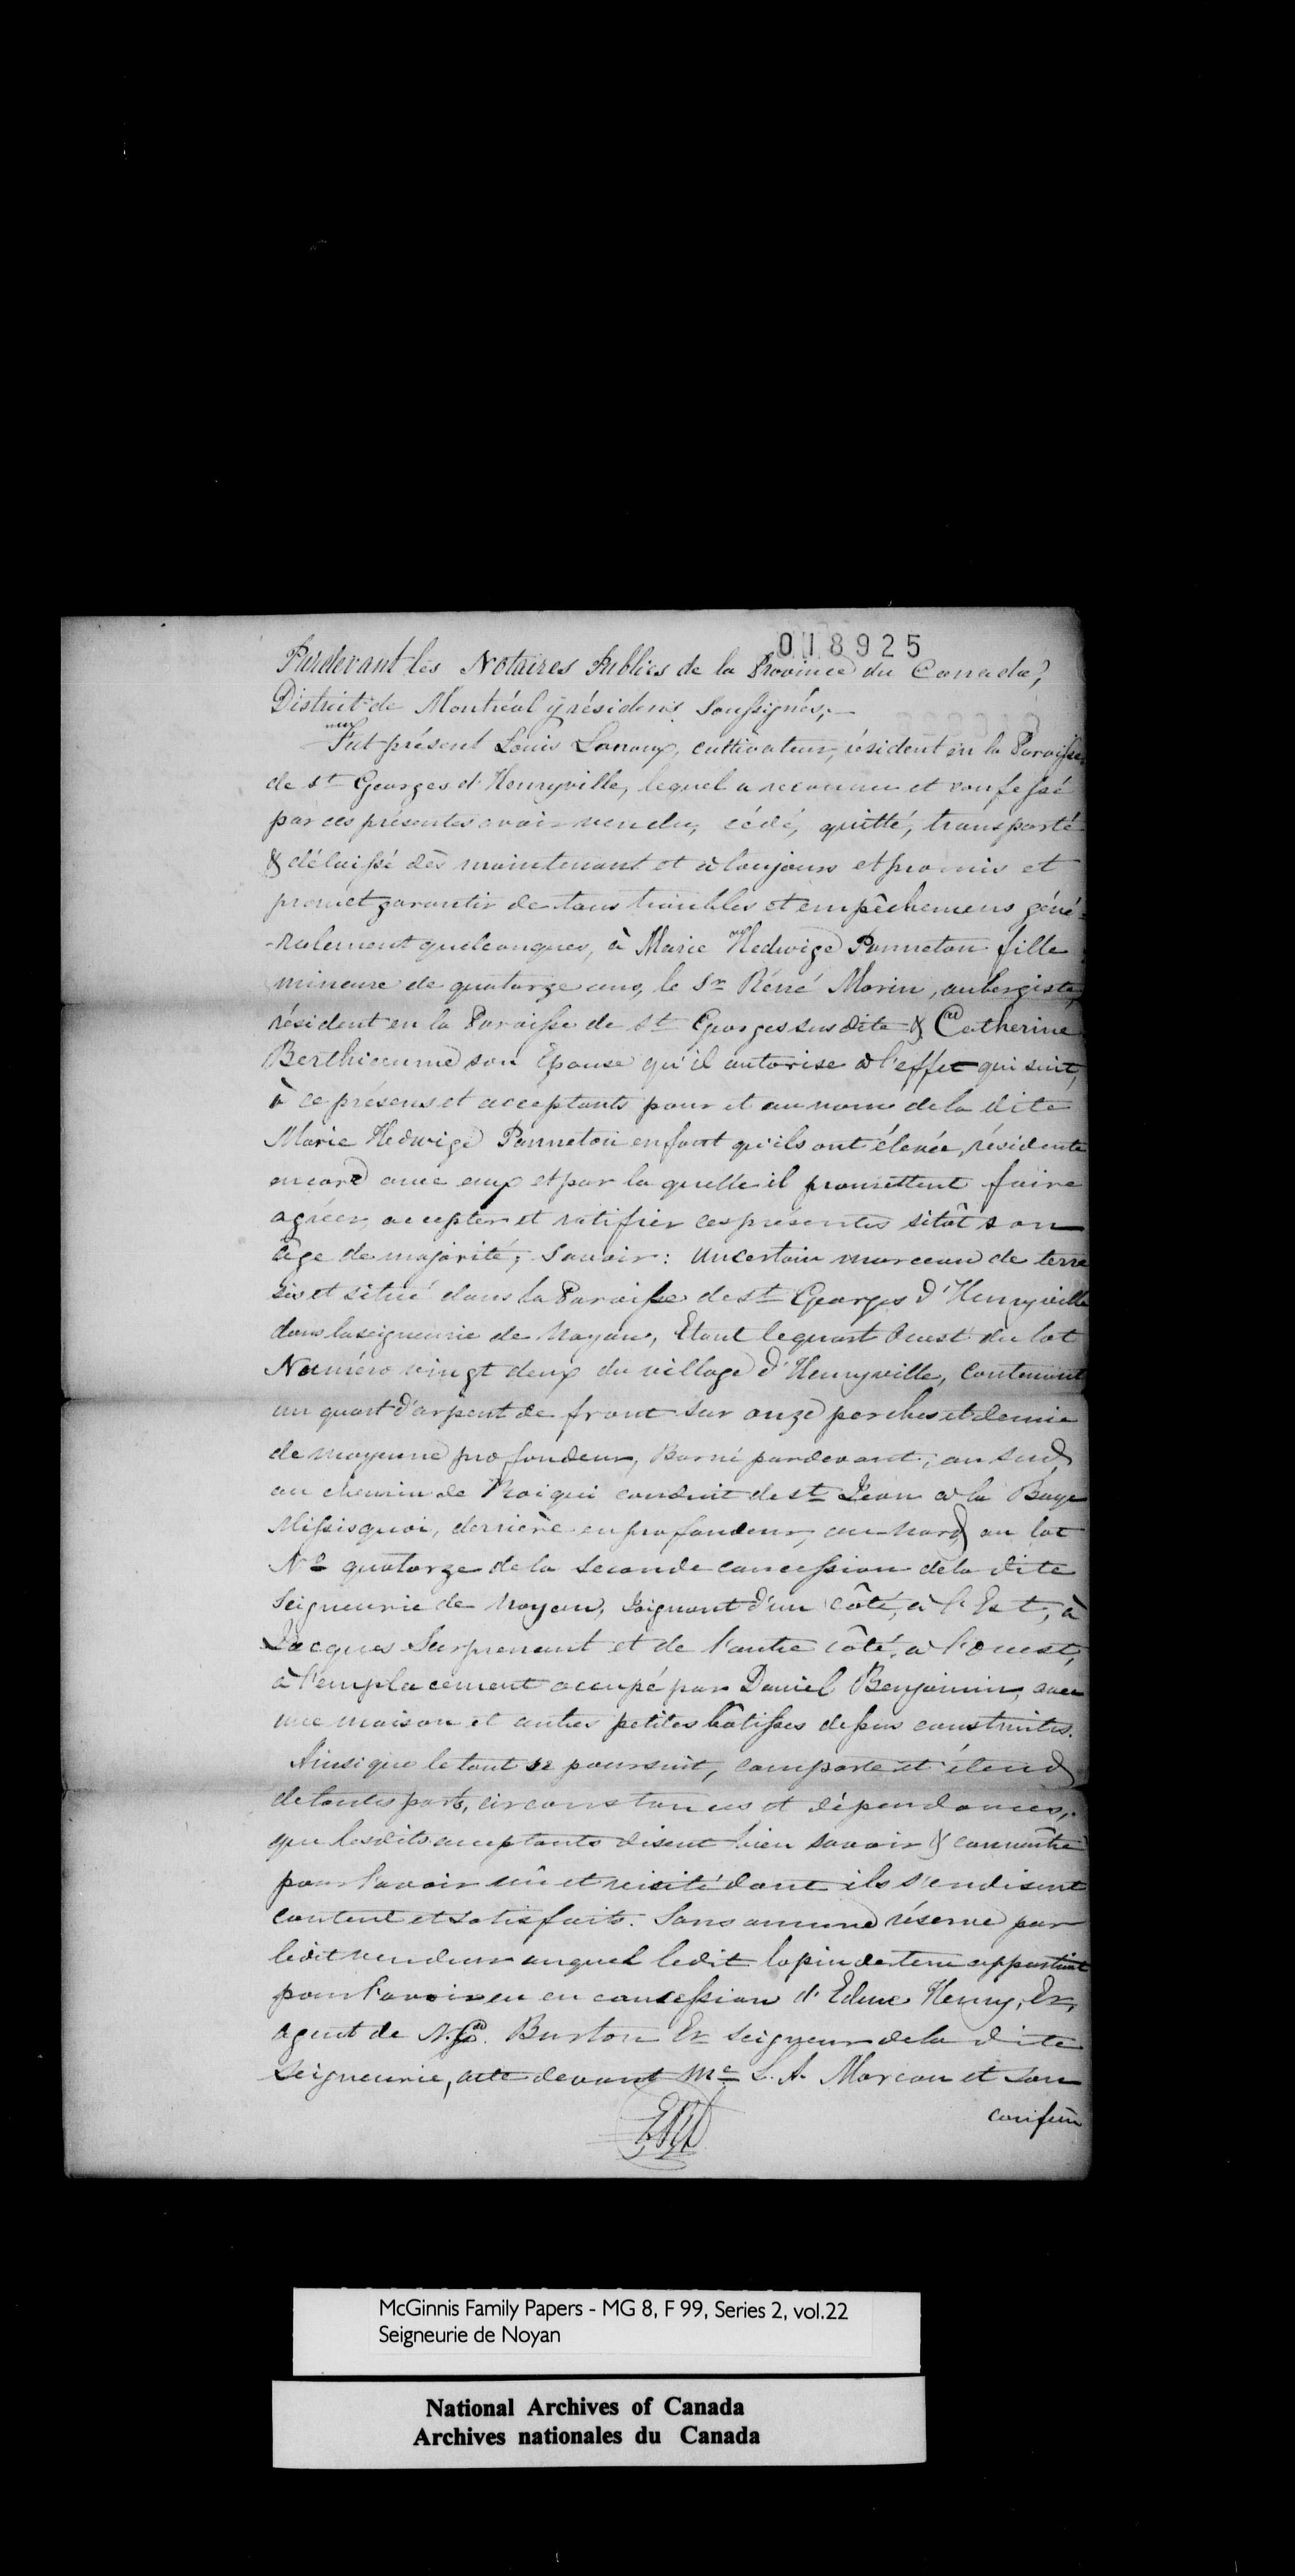 018925
Pardevant les Notaires Publics de la Province du Canada,
District de Montréal y résidens Soussignés,—
Fut présent Louis Lanoux, cultivateur, résident en la Paroisse
de St Georges d'Henryville, lequel a reconnu et confessé
par ces présentes avoir vendu, cédé, quitté, transporté
& délaissé dès maintenant et à toujours et promis et
promet garantir de tous troubles et empêchemens géné-
-ralement quelconques, à Marie Hedwige Panneton fille
mineure de quatorze ans, le Sr Réné Morin, aubergiste,
résident en la Paroisse de St Georges susdite & Catherine
Berthiaume son Epouse qu'il autorise à l'effet qui suit,
à ce présens et acceptants pour et au nom de la dite
Marie Hedwige Panneton enfant qu'ils ont élevée, résidente
encore avec eux et par la quelle il promettent faire
agréer, accepter et ratifier ces présentes sitôt son
âge de majorité; Savoir: Un certain morceau de terre
sis et situé dans la Paroisse de St Georges d'Henryville
dans la seigneurie de Noyan, Etant le quart Ouest du lot
Numéro vingt deux du village d'Henryville, contenant
un quart d'arpent de front sur onze perches et demie
de moyenne profondeur, Borné pardevant, au sud,
au chemin de Roi qui conduit de St Jean à la Baye
Missisquoi, derrière en profondeur, au Nord au lot
No quatorze de la seconde concession de la dite
Seigneurie de Noyan, Joignant d'un côté, à l'Est, à
Jacques Surprenant et de l'autre côté, à l'Ouest,
à l'emplacement occupé par Daniel Benjamin, avec
une maison et autres petites bâtisses dessus construites.
Ainsi que le tout se poursuit, comporte et étend
de toutes parts, circonstances et dépendances,
que lesdits acceptants disent bien savoir & connaître
pour l'avoir vû et visité dont ils s'en disent
content et satisfaits. Sans aucune réserve par
ledit vendeur auquel ledit lopin de terre appartient
pour l'avoir eu en concession d'Edme Henry, Er,
agent de N. Burton Er Seigneur de la dite
Seigneurie, acte devant Me L. A. Moreau et son
confrère
McGinnis Family Papers - MG 8, F 99, Series 2, vol.22
Seigneurie de Noyan
National Archives of Canada
Archives nationales du Canada